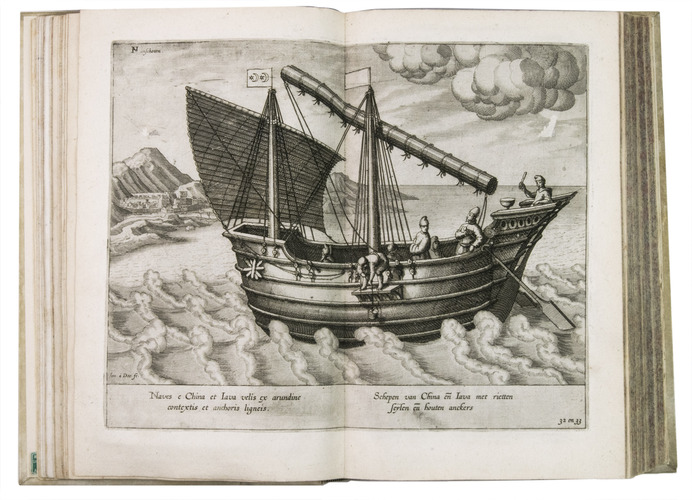 Naves e China et Iava velis ex arundine
contextis et anchoris ligneis.
Schepen van China eñ Iava met rietten
seylen eñ houten anckers
32 en 33